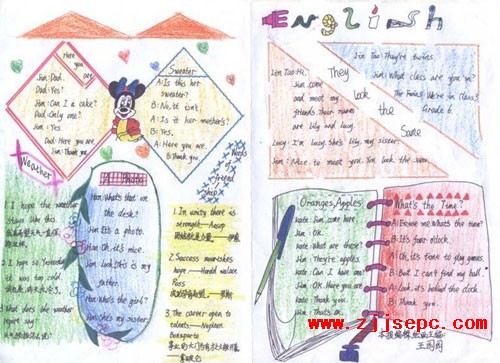 Here
you
are
Jim: Dad.
Dad: Yes?
Jim: Can I a cake?
Dad: Only one!
Jim: Yes.
Dad: Here you are.
Jim: Thank you.
Sweater
A: Is this her
sweater?
B: No, it isn't.
A: Is it her mother's?
B: Yes.
A: Here you are.
B: Thank you.
Weather
1. I hope the weather
stays like this
2. I hope so. Yesterday
it was too cold.
3. What does the weather
report say?
A Photo
Han: What's that on
the desk?
Jim: It's a photo.
Han: Oh, it's nice.
Jim: Look, this is my
father.
Han: Who's the girl?
Jim: She's my sister.
Words
of
friend
ship
1. In unity there is
strength—Aesop
2. Success nourishes
hope
3. The career open to
talents—Napoleon
Bonaparte
English
They
look
the
Same
Lin Tao: Hi,
Jim, come
and meet my
friends. Their names
are Lily and Lucy.
Lucy: I'm Lucy. She's Lily, my sister.
Jim: Nice to meet you. You look the same.
Lin Tao: They're twins.
Jim: What class are you in?
The Twins: We're in Class 3,
Grade 6.
Oranges, Apples
Kate: Jim, come here.
Jim: OK.
Kate: What are these?
Jim: They're apples.
Kate: Can I have one?
Jim: OK. Here you are
Kate: Thank you.
Jim: That's OK.
What's the Time?
A: Excuse me. What's the time?
B: It's four o'clock.
A: Oh, it's time to play games.
B: But I can't find my ball.
A: Look, it's behind the clock.
B: Thank you.
www.zjjsepc.com